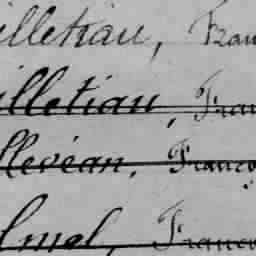 illetiau, Fran
illetiau, Fran
llevéan, Franço
lmel, Franco